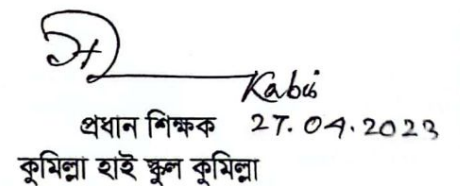 Kabir
প্রধান শিক্ষক 27.04.2023
কুমিল্লা হাই স্কুল কুমিল্লা